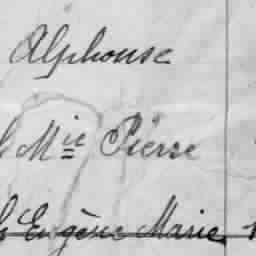 Alphonse
Mie Pierre
Eugène Marie